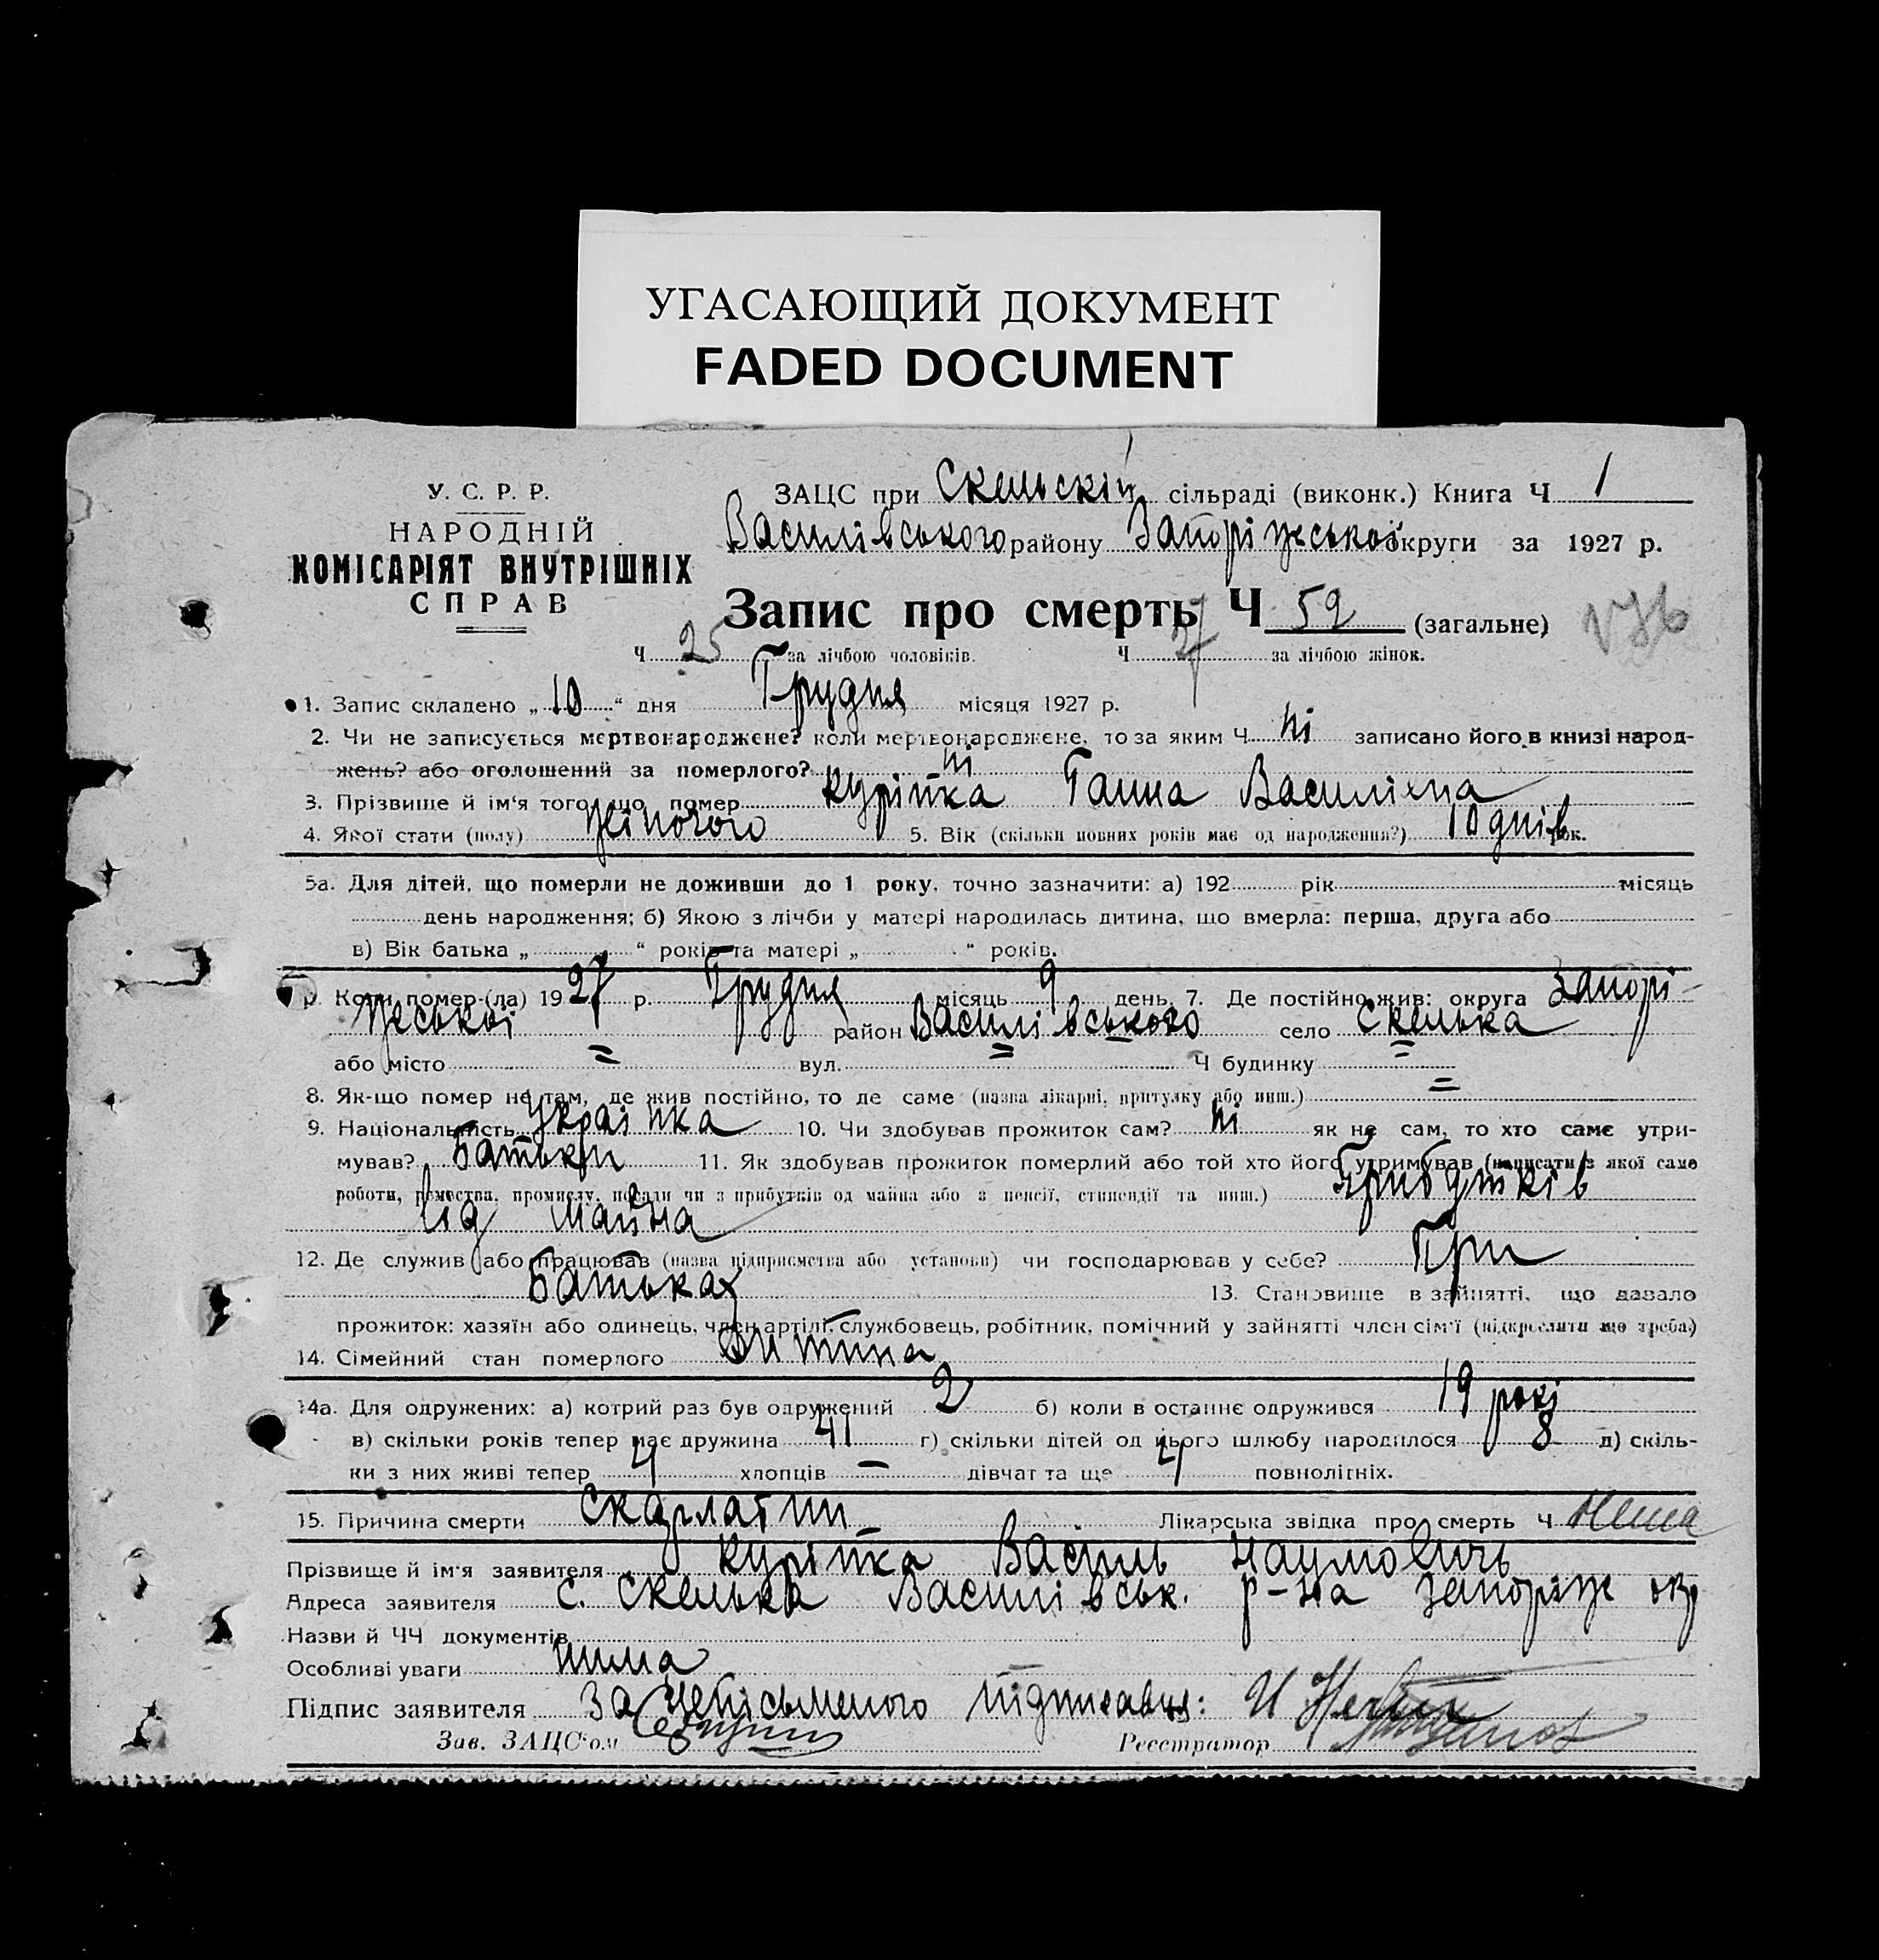 УГАСАЮЩИЙ ДОКУМЕНТ
FADED DOCUMENT
У. С. Р. Р.
НАРОДНІЙ
КОМІСАРІЯТ ВНУТРІШНІХ
СПРАВ
ЗАЦС при Скельскій сільраді (виконк.) Книга Ч 1
Василівського району Запоріжської округи за 1927 р.
Запис про смерть Ч 52 (загальне)
Ч 25 за лічбою чоловіків. Ч 27 за лічбою жінок.
1. Запис складено „10“ дня Грудня місяця 1927 р.
2. Чи не записується мертвонароджене? коли мертвонароджене, то за яким Ч ні записано його в книзі народ-
жень? або оголошений за померлого? ні
3. Прізвище й ім‘я того, що помер Куріпка Ганна Василівна
4. Якої стати (полу) Жіночого 5. Вік (скільки повних років має од народження?) 10 днів рок.
5а. Для дітей, що померли не доживши до 1 року, точно зазначити: а) 192 рік місяць
день народження; б) Якою з лічби у матері народилась дитина, що вмерла: перша, друга або
в) Вік батька „ “ років та матері „ “ років.
Коли помер (ла) 1927 р. Грудня місяць 9 день. 7. Де постійно жив: округа Запорі-
жської район Василівського село Скелька
або місто = вул. = Ч будинку =
8. Як-що помер не там, де жив постійно, то де саме (назва лікарні, притулку або инш.) =
9. Національність Українка 10. Чи здобував прожиток сам? ні як не сам, то хто саме утри-
мував? Батьки 11. Як здобував прожиток померлий або той хто його утримував (написати з якої саме
роботи, ремества, промислу, посади чи з прибутків од майна або з пенсії, стипендії та инш.) Прибутків
від майна
12. Де служив або працював (назва підприємства або установи) чи господарював у себе? При
Батьках 13. Становище в зайнятті, що давало
прожиток: хазяїн або одинець, член артілі, службовець, робітник, помічний у зайнятті член сім‘ї (підкреслити що треба)
14. Сімейний стан померлого Дитина
14а. Для одружених: а) котрий раз був одружений 2 б) коли в останнє одружився 19 рокі
в) скільки років тепер має дружина 41 г) скільки дітей од цього шлюбу народилося 8 д) скіль-
ки з них живі тепер 4 хлопців — дівчат та ще 4 повнолітніх.
15. Причина смерти Скарлатин Лікарська звідка про смерть Ч Нема
Прізвище й ім‘я заявителя Куріпка Василь Наумовичь
Адреса заявителя с. Скелька Василівськ. р-на Запоріж окр
Назви й ЧЧ документів
Особливі уваги нима
Підпис заявителя За неписьменого підписався: И
Зав. ЗАЦС‘ом
Реєстратор